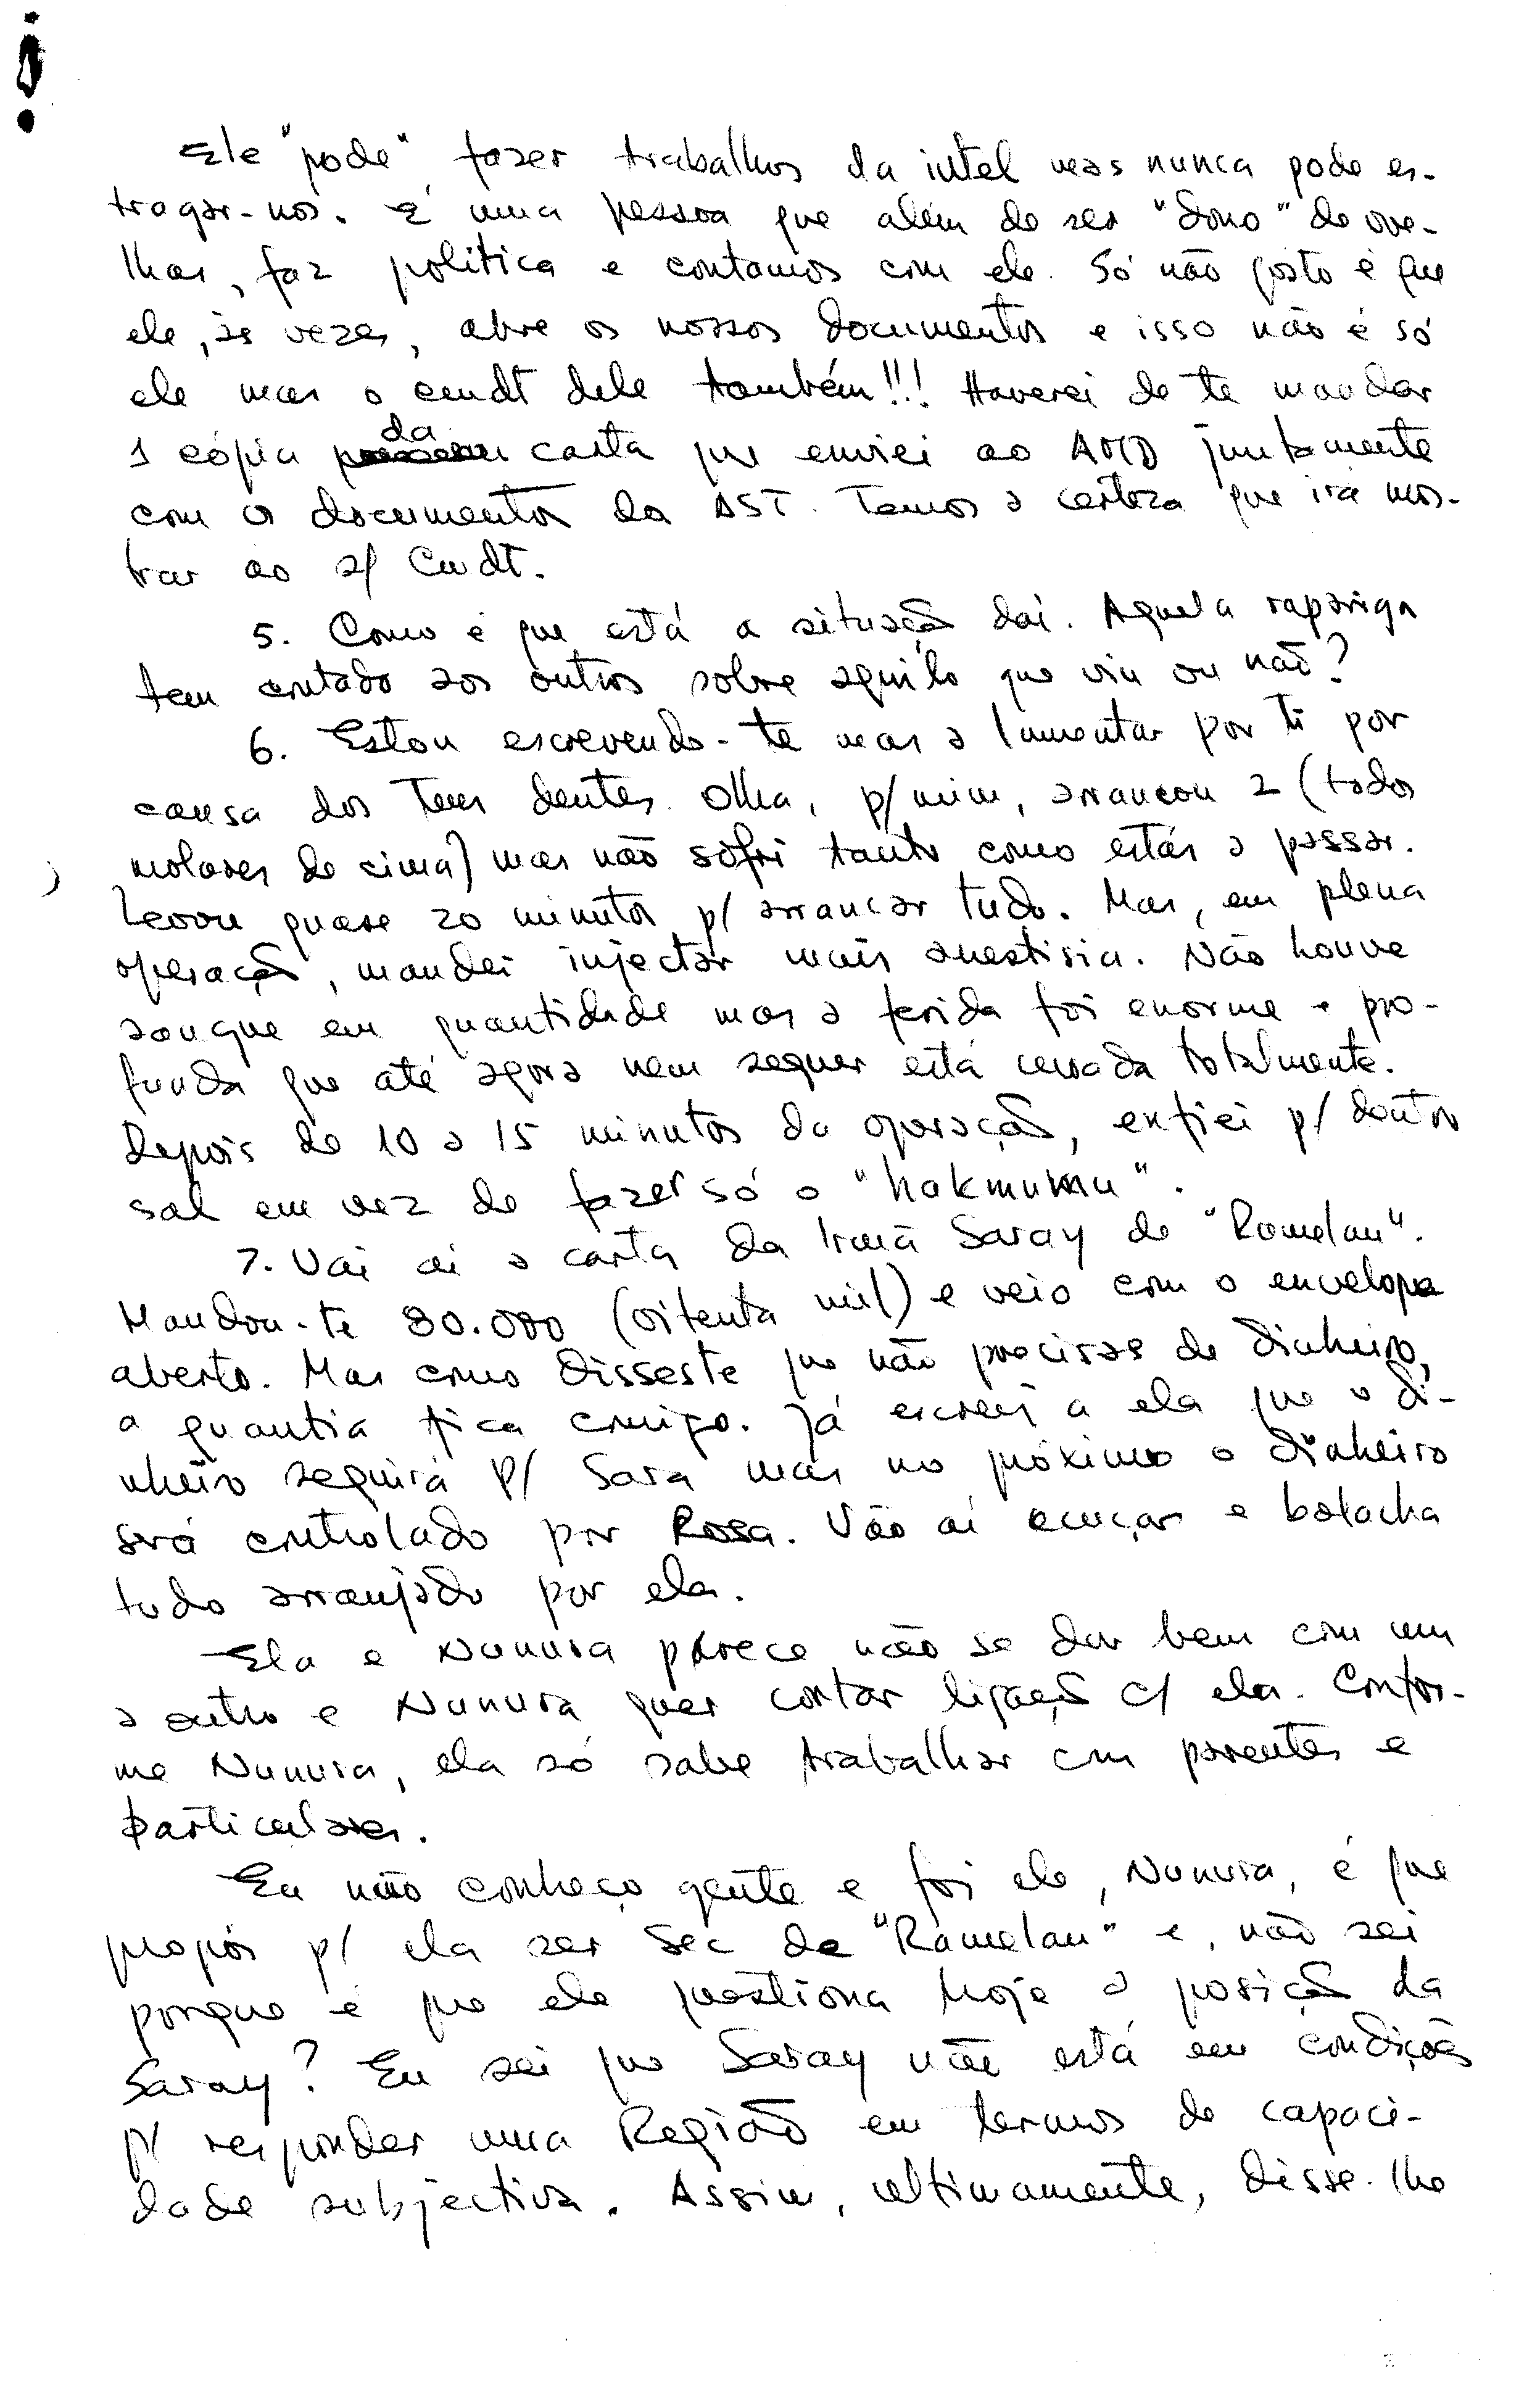 Ele "pode" fazer trabalhos da intel mas nunca pode es-
tragar-nos. É uma pessoa que além de ser "dono" de ove-
lhas, faz política e contamos com ele. Só não gosto é que
ele, às vezes, abre os nossos documentos e isso não é só
ele mas o cmdt dele também!!! Haverei de te mandar
1 cópia da carta que enviei ao AMD juntamente
com os documentos da AST. Temos a certeza que irá mos-
trar ao s/ Cmdt.
5. Como é que está a situação daí. Aquela rapariga
tem contado aos outros sobre aquilo que viu ou não?
6. Estou escrevendo-te mas a lamentar por ti por
causa dos teus dentes. Olha, p/ mim, arrancou 2 (todos
molares de cima) mas não sofri tanto como estás a passar.
Levou quase 20 minutos p/ arrancar tudo. Mas, em plena
operação, mandei injectar mais anestisia. Não houve
sangue em quantidade mas a ferida foi enorme e pro-
funda que até agora nem sequer está cerrada totalmente.
Depois de 10 a 15 minutos da operação, enfiei p/ dentro
sal em vez de fazer só o "hakmumu".
7. Vai aí a carta da Irmã Saray de "Ramelau".
Mandou-te 80.000 (oitenta mil) e veio com o envelope
aberto. Mas como disseste que não precisas de dinheiro,
a quantia fica comigo. Já escrevi a ela que o di-
nheiro seguirá p/ Sara mas no próximo o dinheiro
será controlado por Rosa. Vão aí acuçar e bolacha
tudo arranjado por ela.
Ela e Nunura parece não se dar bem com um
a outro e Nunura quer cortar ligação c/ ela. Confor-
me Nunura, ela só sabe trabalhar com parentes e
particulares.
Eu não conheço gente e foi ele, Nunura, é que
propôs p/ ela ser Sec de "Ramelau" e, não sei
porque é que ele questiona hoje a posição da
Saray? Eu sei que Saray não está em condições
p/ responder uma Região em termos de capaci-
dade subjectiva. Assim, ultimamente, disse-lhe